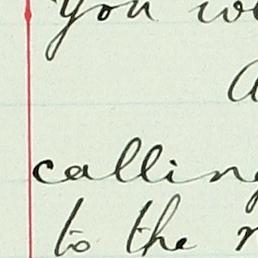 You
calling
to the